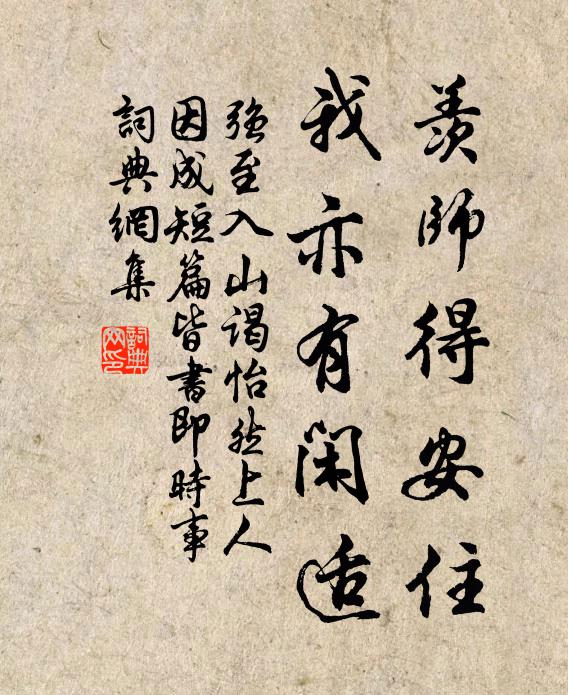 羨師得安住
我亦有閑適
強至入山謁怡然上人
因成短篇皆書即時事
詞典網集
詞典網印